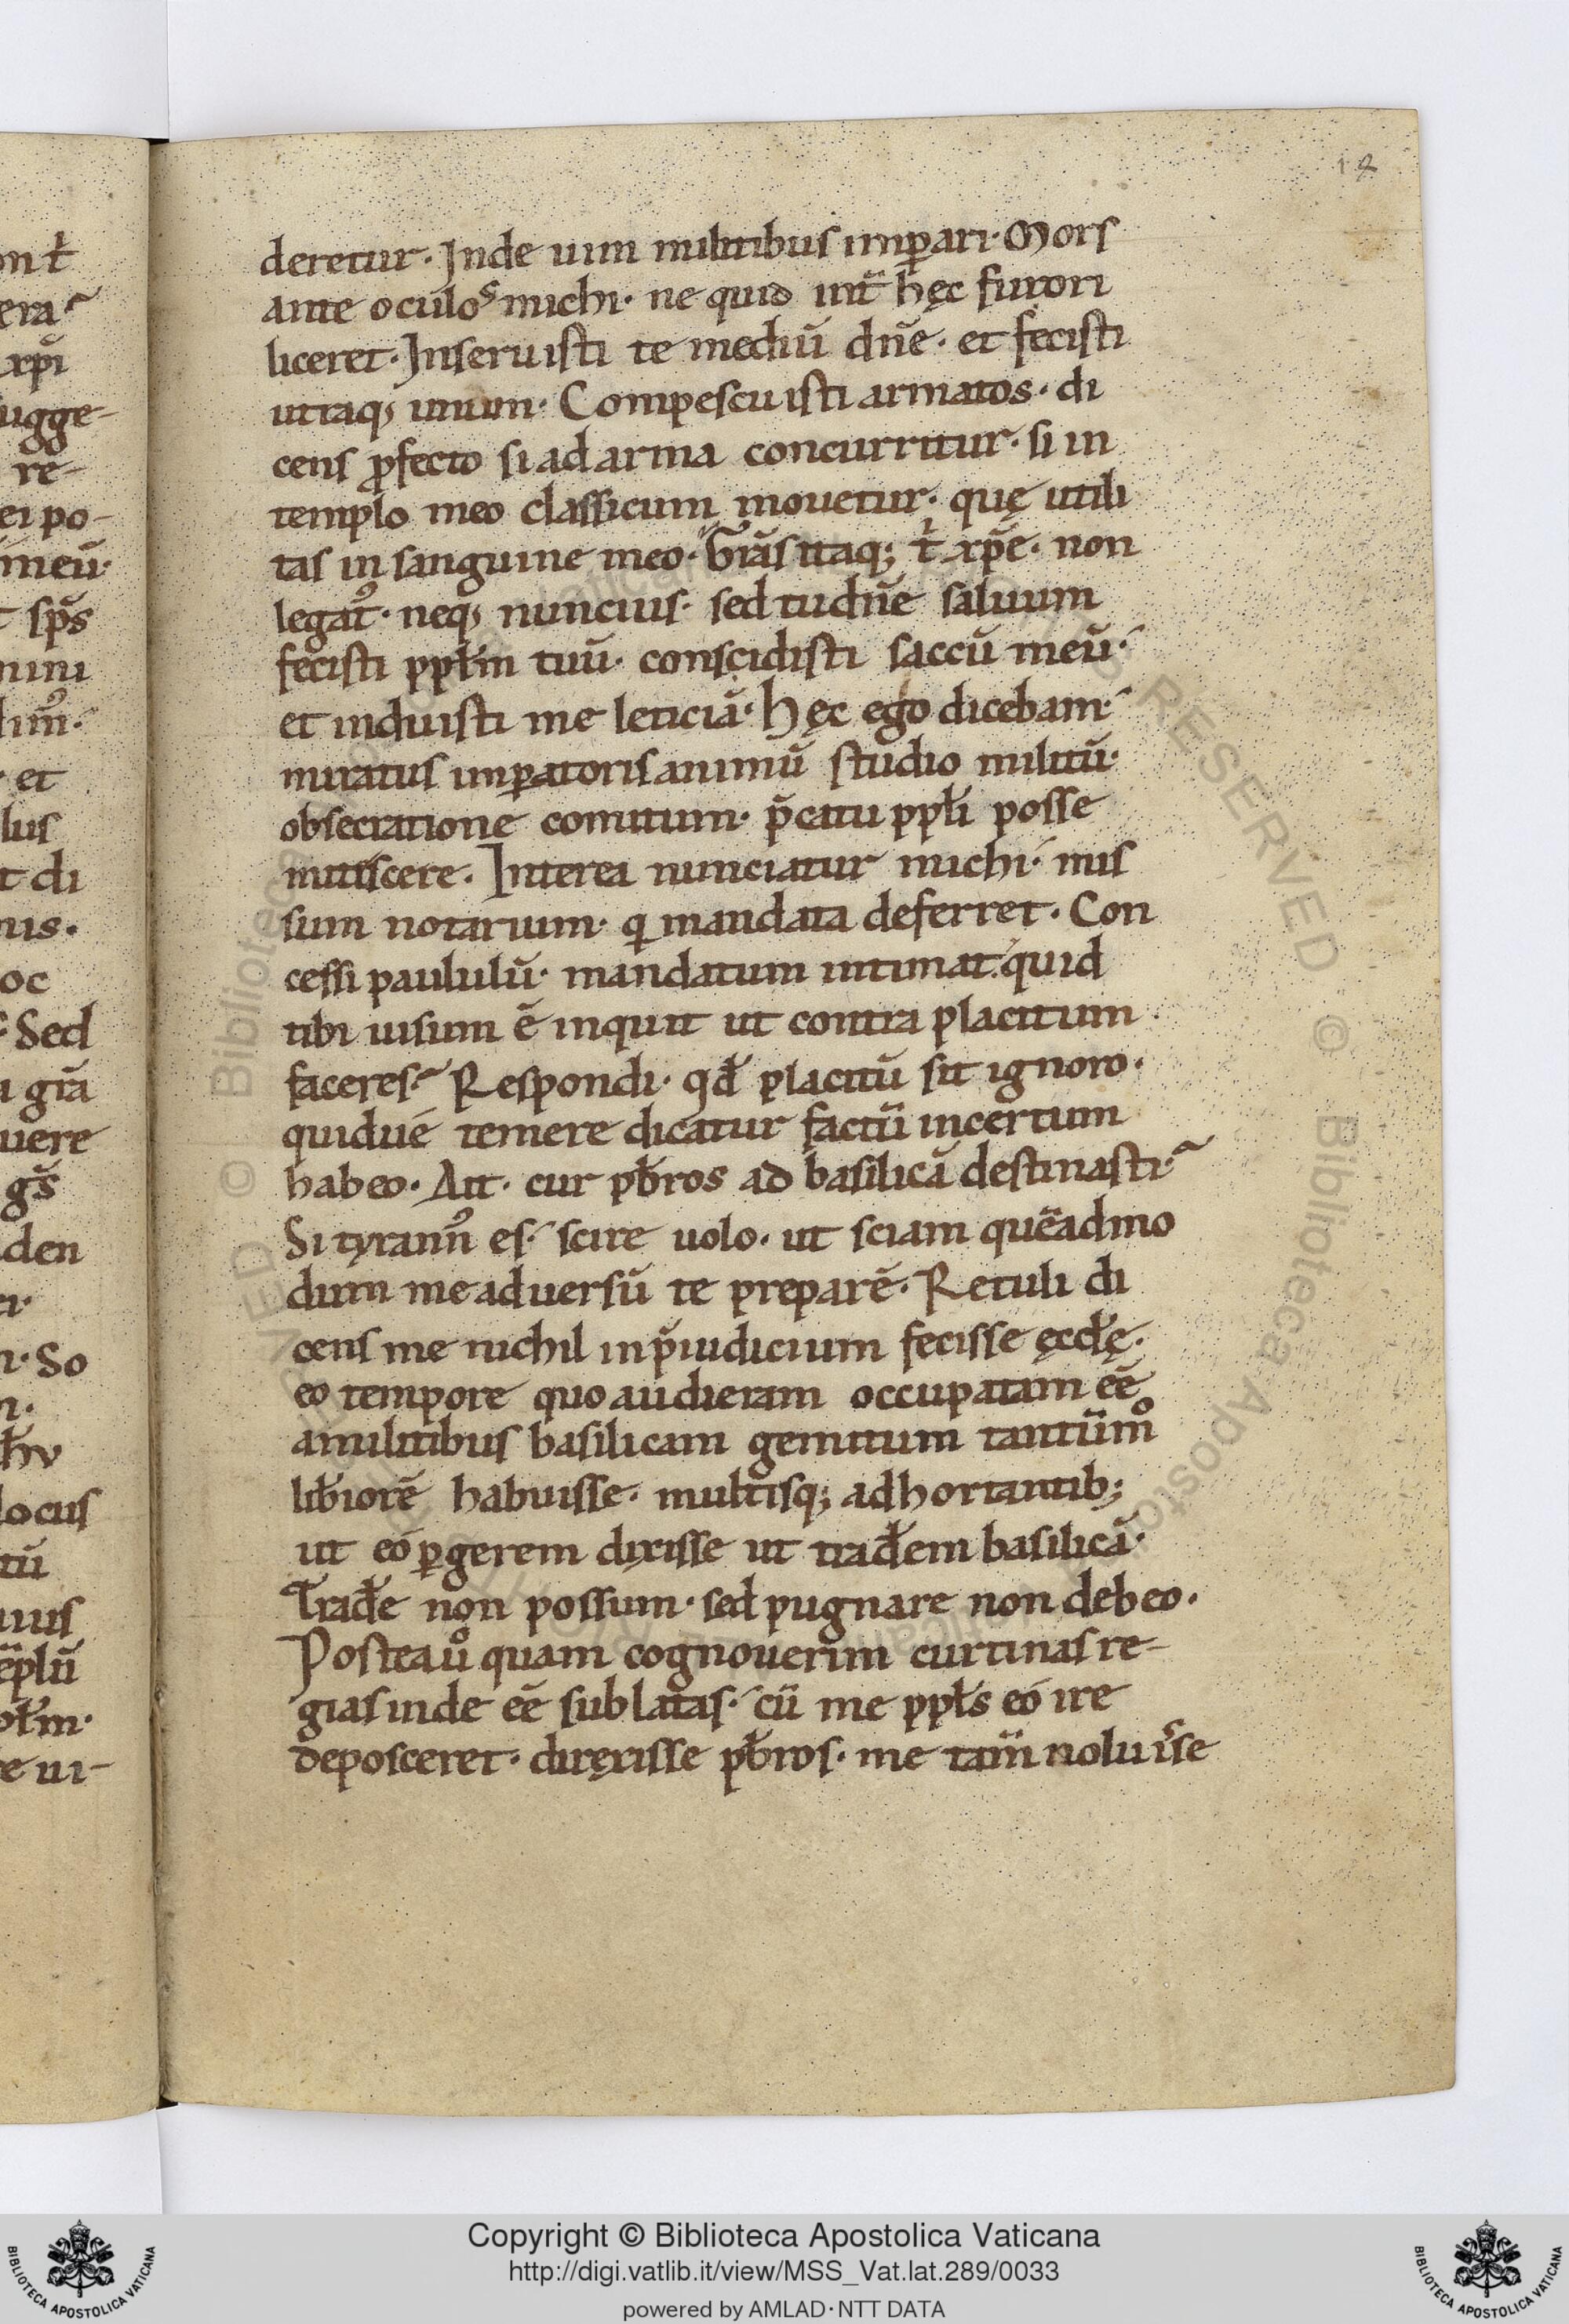 12
deretur. Inde uim militibus imꝑari. Mors
ante oculos michi. ne quid int̄ hęc furori
liceret. Inseruisti te mediū dn̄e. et fecisti
utraq; unum. Compescuisti armatos. di
cens ꝓfecto si ad arma concurritur. si in
templo meo classicum mouetur. quę utili
tas in sanguine meo. Gr̄as itaq; t̄ xp̄e. non
legatꝰ. neq; nuncius. sed tu dn̄e saluum
fecisti ppł̄m tuū. conscidisti saccū meū.
et induisti me leticiā. hęc ego dicebam.
miratus imꝑatoris animū studio militū.
obsecratione comitum. p̄catu ppłi posse
mitiscere. Interea nunciatur michi. mis
sum notarium. qi mandata deferret. Con
cessi paululū. mandatum intimat. quid
tibi uisum ē inquit ut contra placitum
faceres? Respondi. qd̄ placitū sit ignoro.
quidue temere dicatur factū incertum
habeo. Ait. cur pb̄ros ad basilicā destinasti?
Si tyrannꝰ es. scire uolo. ut sciam quēadmo
dum me aduersū te preparē. Retuli di
cens me nichil in p̄iudicium fecisse ęccłę.
eo tempore quo audieram occupatam eē
a militibus basilicam gemitum tantūmͦ
lib̄iorē habuisse. multisq; adhortantib;
ut eo ꝑgerem dixisse ut trad̄em basilicā.
Trad̄e non possum. sed pugnare non debeo.
Postea uͦ quam cognouerim curtinas re-
gias inde eē sublatas. cū me ppłs eo ire
deposceret. direxisse pb̄ros. me tam̄ noluisse
ont̄
era?
xp̄i
ugge-
re-
ei po-
meū.
sp̄s
mini
limꝰ.
et
lus
t di
nus.
oc
Sed
gr̄a
uere
gs̄
den
n. So
locus
tū
uius
ēplū
e ui-
Copyright © Biblioteca Apostolica Vaticana
http://digi.vatlib.it/view/MSS_Vat.lat.289/0033
powered by AMLAD·NTT DATA
BIBLIOTECA APOSTOLICA VATICANA
BIBLIOTECA APOSTOLICA VATICANA